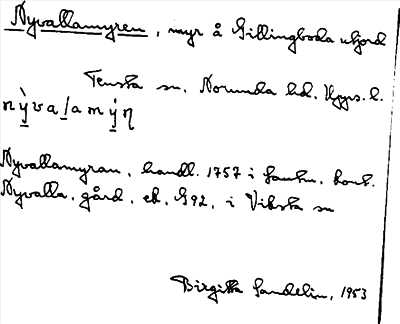 Nyvallamyren, myr å Gillingboda utjord
Tensta sn. Norunda hd. Upps. l.
nỳvalamýn
Nyvallamyran, handl. 1757 i Lantm. kont.
Nyvalla, gård, ek. G92, i Viksta sn
Birgitta Sandelin, 1953